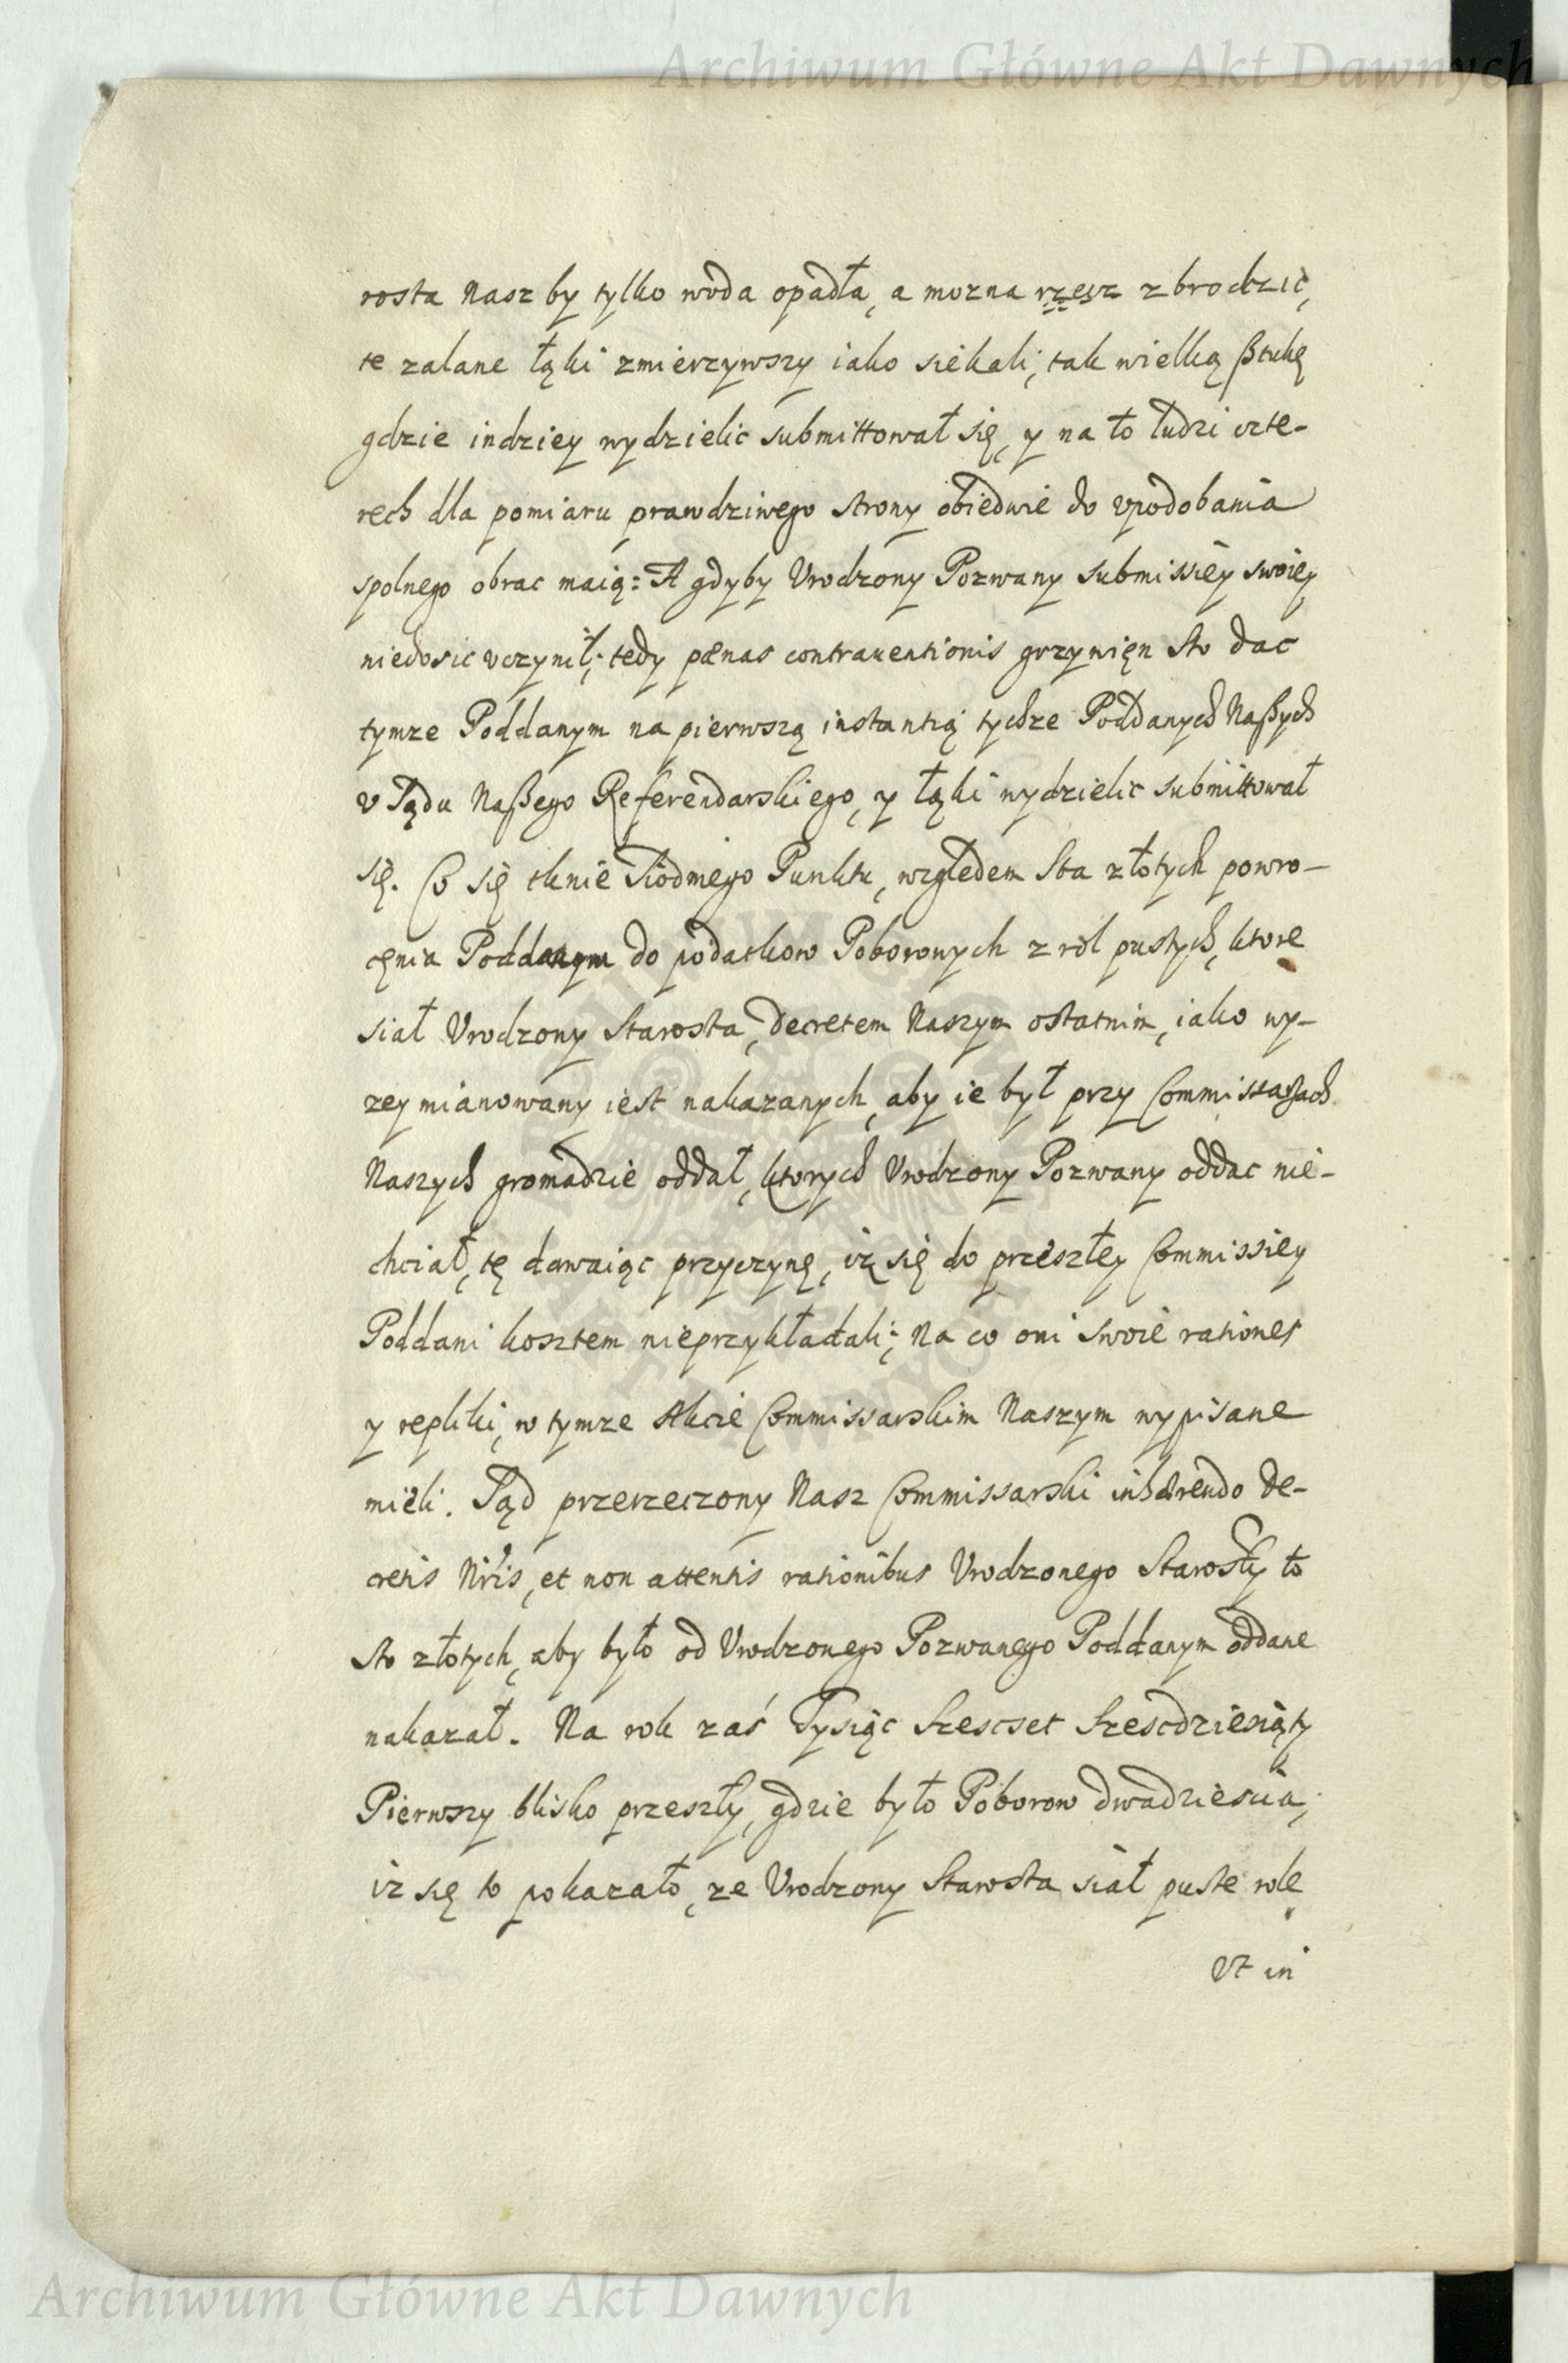 Archiwum Główne Akt Dawnych
rosta Nasz by tylko woda opadła, a mozna rzesz zbrodzić,
te zalane łąki zmierzywszy iako siekali, tak wielką ßtukę
gdzie indziey wydzielic submittował się, y na to ludzi czte-
rech dla pomiaru prawdziwego strony obiedwie do vpodobania
spolnego obrac maią: A gdyby Vrodzony Pozwany submissiey swoiey
niedosic vczynił; tedy pænas contrauentionis grzywięn sto dac
tymze Poddanym na pierwszą instantią tychze Poddanych Naßych
v Sądu Naßego Referendarskiego, y łąki wydzielic submittował
się. Co się tknie Siodmego Punktu, względem sta złotych powro-
cęnia Poddanym do podatkow Poborowych z rol pustych, ktore
siał Vrodzony Starosta, decretem Naszym ostatnim, iako wy-
zey mianowany iest nakazanych, aby ie był przy Commissarzach
Naszych gromadzie oddał, ktorych Vrodzony Pozwany oddac nie-
chciał, tę dawaiąc przyczynę, iz się do przeszłey Commissiey
Poddani kosztem nieprzykładali; Na co oni swoie rationes
y repliki, w tymze Akcie Commissarskim Naszym wypisane
mieli. Sąd przerzeczony Nasz Commissarski inhærendo De-
cretis Nr̃is, et non attentis rationibus Vrodzonego Starosty to
sto złotych, aby było od Vrodzonego Pozwanego Poddanym oddane
nakazał. Na rok zaś Tysiąc Szescset Szescdziesiąty
Pierwszy blisko przeszły, gdzie było Poborow dwadziescia,
iz się to pokazało, ze Vrodzony Starosta siał puste role
vt in
Archiwum Główne Akt Dawnych